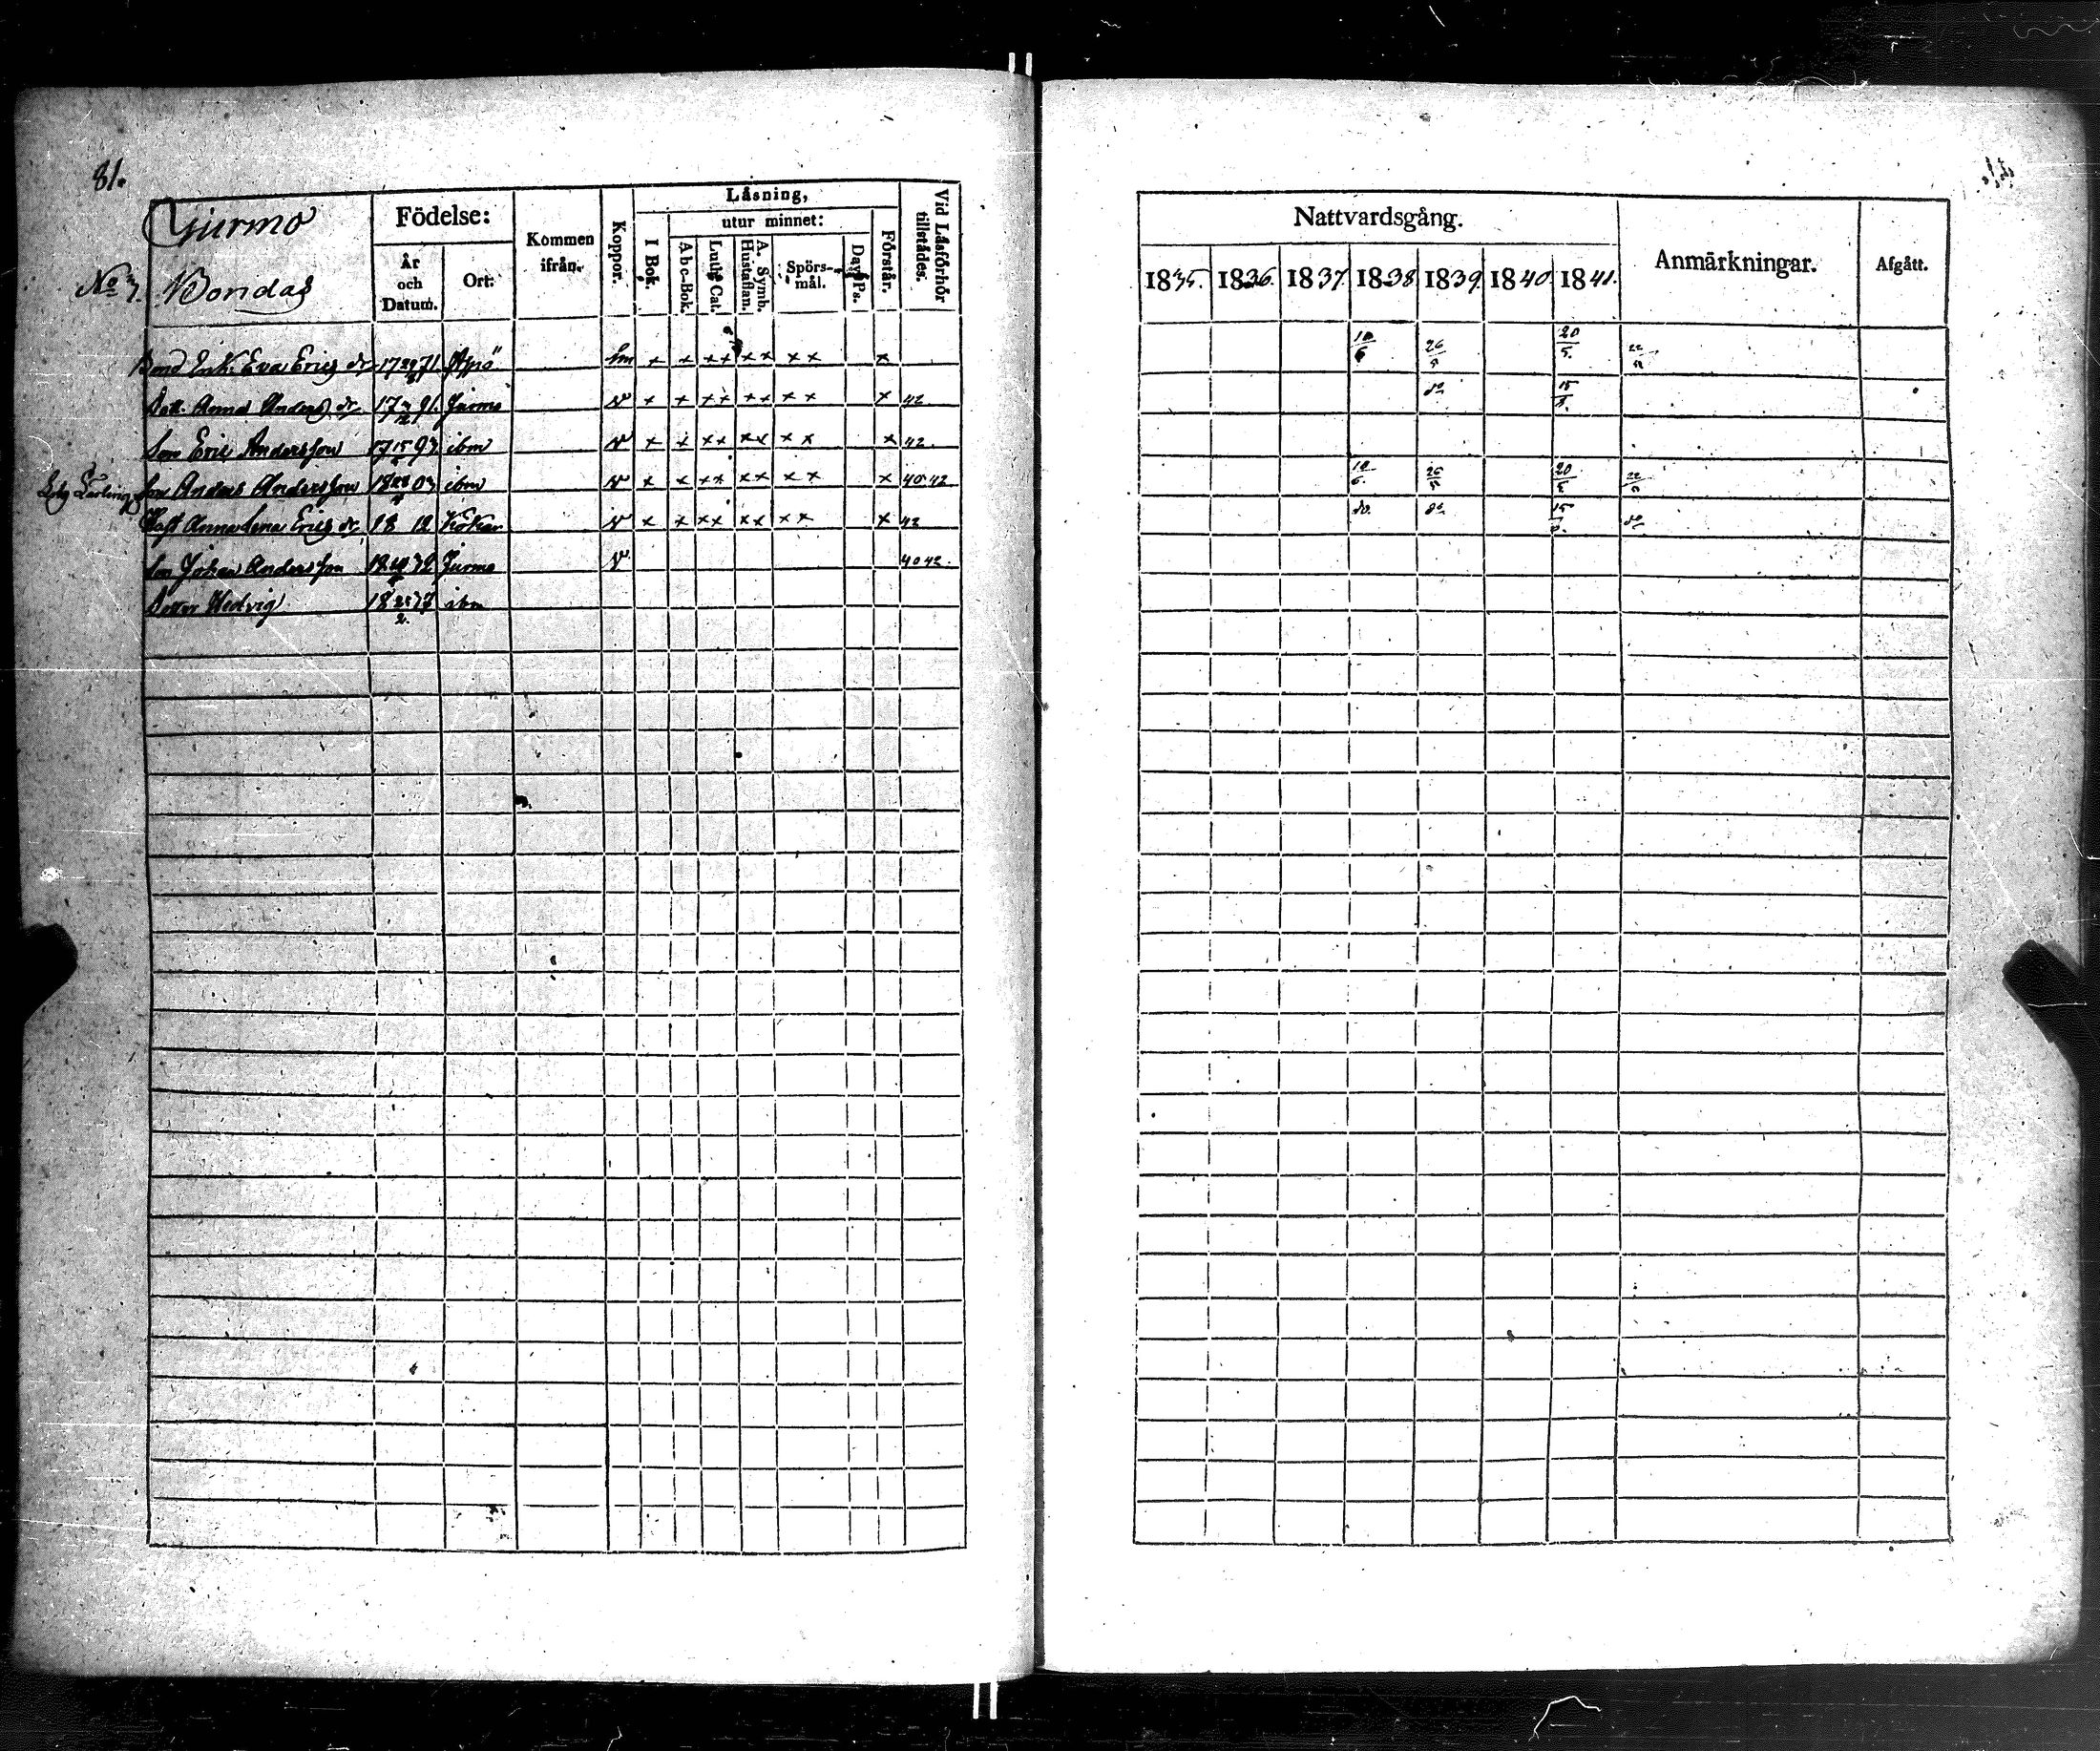 81.
Jurmo
No 3. Bondas
Födelse:
År och Datum.
Ort:
Kommen ifrån.
Koppor.
Läsning,
I Bok.
utur minnet:
Abc-Bok.
Luth. Cat.
A. Symb. Hustaflan.
Spörs-mål.
Dav. Ps.
Förstår.
Vid Läsförhör tillstädes.
Nattvardsgång.
1835. 1836. 1837. 1838 1839. 1840. 1841.
Anmärkningar.
Afgått.
Bond Enk. Eva Erics dr 17 29 71. Åpö x x x x x x x x x 10/6 26/5 20/5. 22/5
Dott. Anna Anders dr 17 91. Jurmo v x x x x x x x x x 42 do 15/8.
Son Eric Andersson 17 15 93 ibm v x x x x x x x x x 42.
Son Anders Andersson 18 28 03 ibm v x x x x x x x x x 40.42 10/6. 26/5 20/5 22/5
Hust Anna Lena Erics dr. 18 12 Kökar v x x x x x x x x x 42 do. do 15/8. do
Son Johan Andersson 18 20 32 Jurmo v 40 42.
Dotter Hedvig 18 25/2. 37 ibm